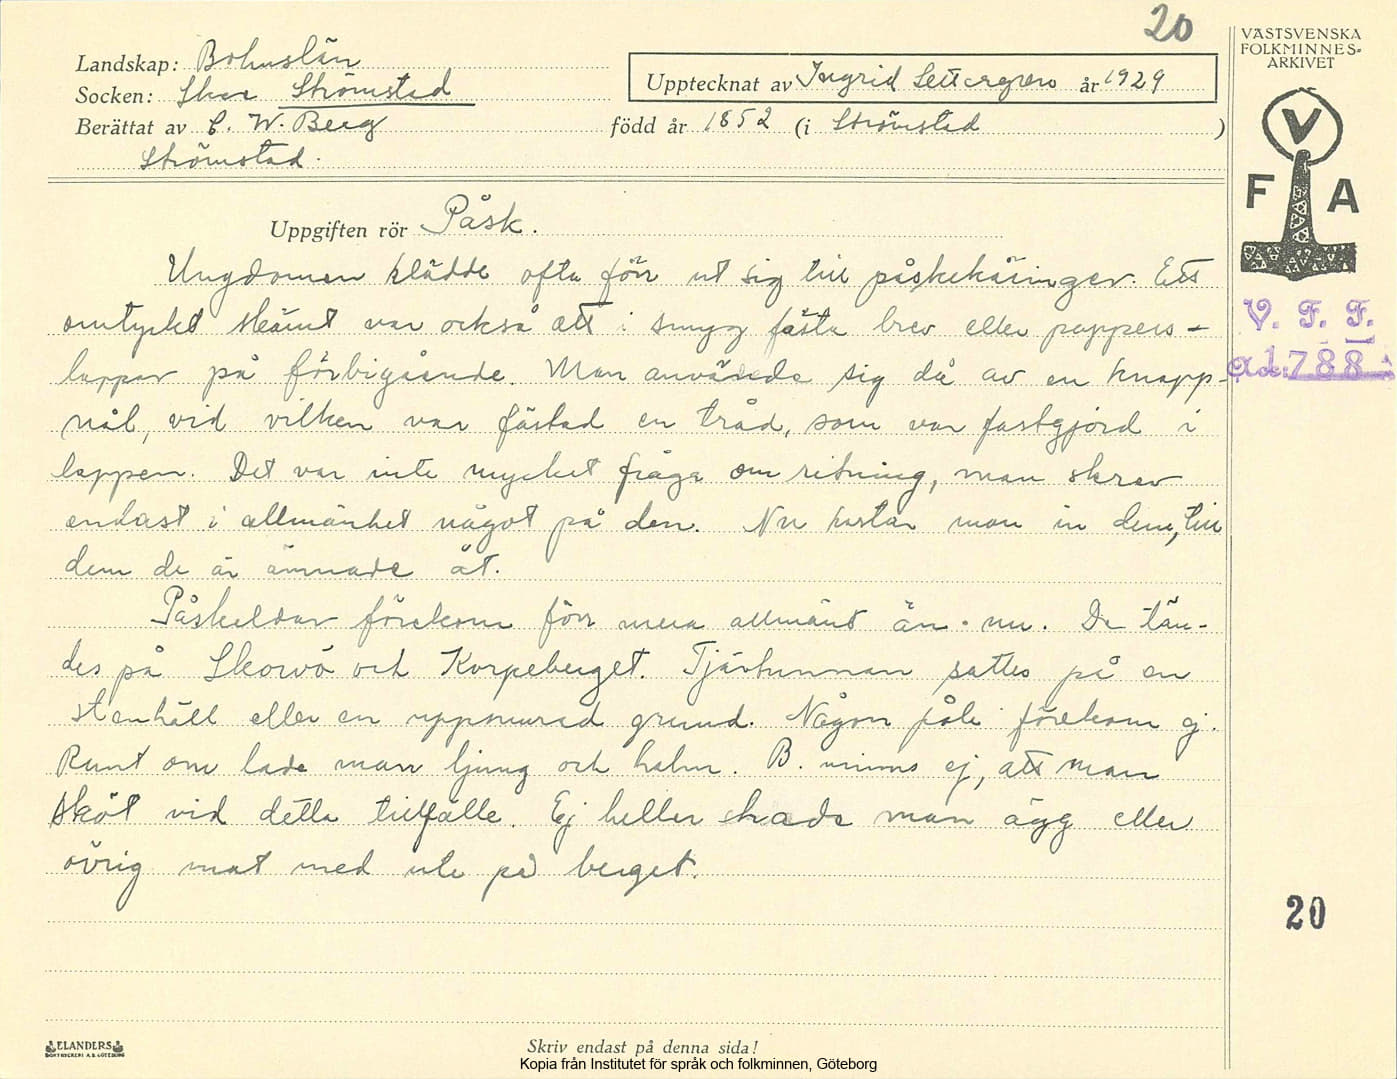 20
VÄSTSVENSKA
FOLKMINNES-
ARKIVET
Landskap: Bohuslän
Socken: Skee Strömstad
Upptecknat av Ingrid Settergren år 1929
Berättat av C. W. Berg född år 1852 (i Strömstad )
Strömstad.
V
F A
Uppgiften rör Påsk.
Ungdomen klädde ofta förr ut sig till påskekäringar. Ett
omtyckt skämt var också att i smyg fästa brev eller pappers-
lappar på förbigående. Man använde sig då av en knapp-
nål, vid vilken var fästad en tråd, som var fastgjord i
lappen. Det var inte mycket fråga om ritning, man skrev
endast i allmänhet något på den. Nu kastar man in dem, till
dem de är ämnade åt.
V. F. F.
Acc. 1788
Påskeldar förekom förr mera allmänt än nu. De tän-
des på Skorvö och Korpeberget. Tjärtunnan sattes på en
stenhäll eller en uppmurad grund. Någon påle förekom ej.
Runt om lade man ljung och halm. B. minns ej, att man
sköt vid detta tillfälle. Ej heller hade man ägg eller
övrig mat med ute på berget.
20
ELANDERS
BOKTRYCKERI A.B. GÖTEBORG
Skriv endast på denna sida!
Kopia från Institutet för språk och folkminnen, Göteborg